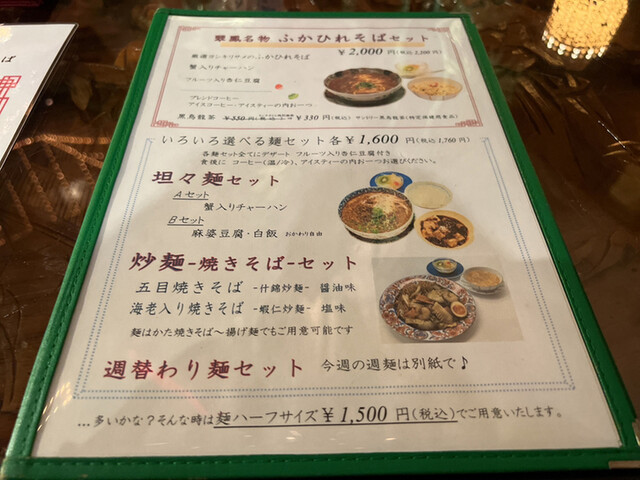 翠鳳名物 ふかひれそばセット
厳選ヨシキリサメのふかひれそば ￥2,000 円(税込2,200円)
蟹入りチャーハン
フルーツ入り杏仁豆腐
ブレンドコーヒー、
アイスコーヒー、アイスティーの内お一つ
黒烏龍茶 ￥550円 ￥330円(税込) サントリー黒烏龍茶(特定保健用食品)
いろいろ選べる麺セット各￥1,600 円(税込1,760円)
各麺セット全てにデザート フルーツ入り杏仁豆腐付き
食後に コーヒー(温/冷)、アイスティーの内お一つお選びください。
坦々麺セット
Aセット
蟹入りチャーハン
Bセット
麻婆豆腐・白飯 おかわり自由
炒麺-焼きそば-セット
五目焼きそば -什錦炒麺- 醤油味
海老入り焼きそば -蝦仁炒麺- 塩味
麺はかた焼きそば～揚げ麺でもご用意可能です
週替わり麺セット 今週の週麺は別紙で♪
…多いかな？そんな時は麺ハーフサイズ￥1,500 円(税込)でご用意いたします。
そば